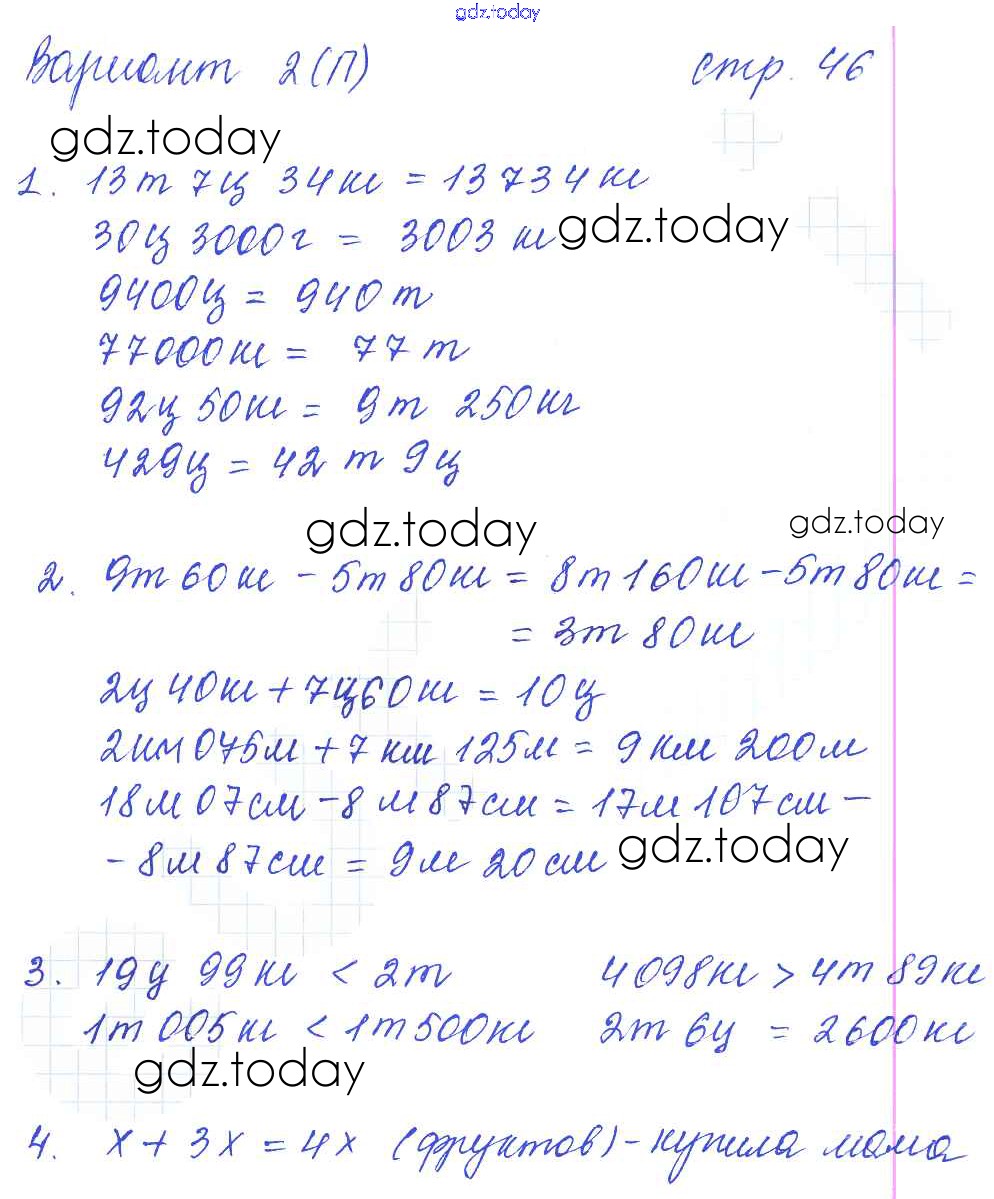 gdz.today
Вариант 2(П) стр. 46
gdz.today
1. 13т 7ц 34кг = 13734кг
30ц 3000г = 3003 кг gdz.today
9400ц = 940т
77000кг = 77т
92ц 50кг = 9т 250кг
429ц = 42т 9ц
gdz.today gdz.today
2. 9т 60кг - 5т 80кг = 8т 160кг - 5т 80кг =
= 3т 80кг
2ц 40кг + 7ц 60кг = 10ц
2км 075м + 7км 125м = 9км 200м
18м 07см - 8м 87см = 17м 107см -
- 8м 87см = 9м 20см gdz.today
3. 19ц 99кг < 2т 4098кг > 4т 89кг
1т 005кг < 1т 500кг 2т 6ц = 2600кг
gdz.today
4. х + 3х = 4х (фруктов) - купила мама